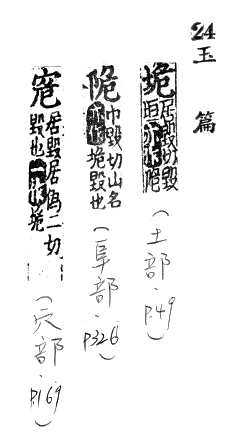 24
玉篇
垝 居毀切毀
垣亦作陒
(土部.P.49)
陒 巾毀切山名
亦作垝毀也
(阜部.P326)
居毀居偽二切
毀也亦作垝
(穴部.P.169)